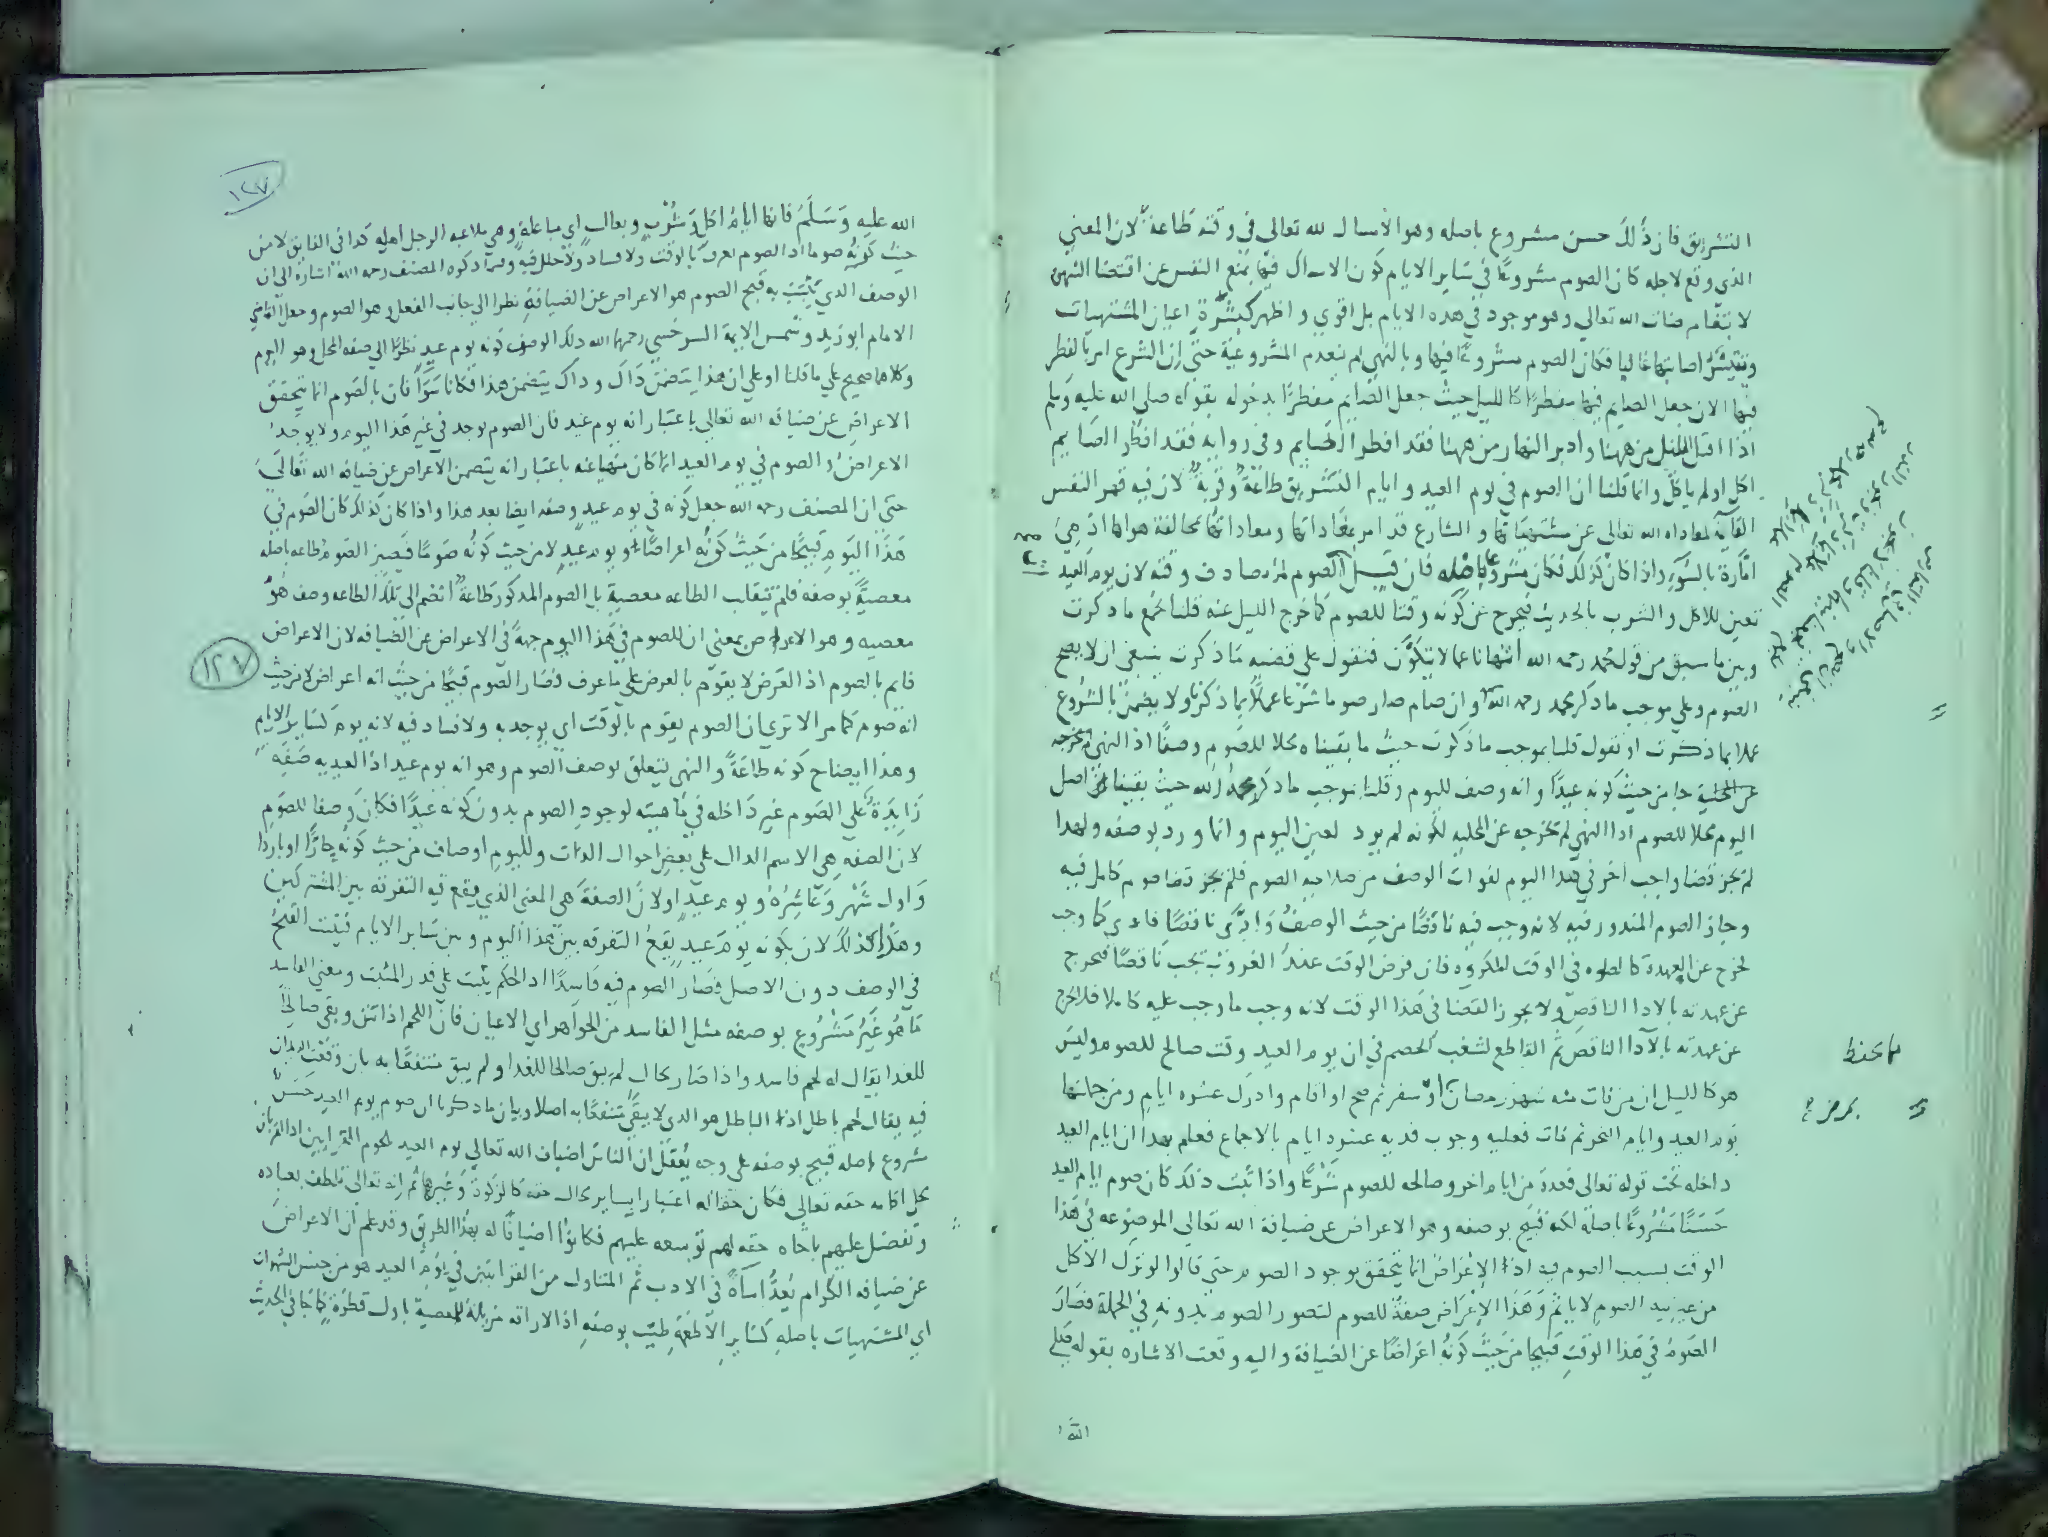 التشريق فان ذلك حسن مشروع باصله وهو الامساك لله تعالى في وقته طاعة لان المعنى
الذي وقع لاجله كان الصوم مشروعا في ساير الايام كون الامساك فيها يمنع النفس عن اقتضا الشهوة
لابتغاء مرضات الله تعالى وهو موجود في هذه الايام بل اقوي واظهر لكثرة اعيان المشتهيات
وتيسر اصابتها غالبا فكان الصوم مشروعا فيها وبالنهي لم ينعدم المشروعية حتى ان الشرع امر بالفطر
فيها لا ان جعل الصايم فيها مفطرا كالليل حيث جعل الصايم مفطرا بدخوله بقوله صلى الله عليه وسلم
اذا اقبل الليل من ههنا وادبر النهار من ههنا فقد افطر الصايم وفى رواية فقد افطر الصايم
اكل او لم ياكل وانما قلنا ان الصوم في يوم العيد وايام التشريق طاعة وقربة لان فيه قهر النفس
الله تعالى عن مشتهياتها والشارع قد امر بمعاداتها ومعاداتها مخالفة هواها اذ هي
امارة بالسوء واذا كان كذلك فكان مشروعا باصله فان قيل الصوم لم يصادف وقته لان يوم العيد
تعين للاكل والشرب بالحديث فيخرج عن كونه وقتا للصوم كما خرج الليل عنه قلنا لجمع ما ذكرت
وبين ما سبق من قول محمد رحمه الله انتهانا عما لا يتكون فنقول على قضية ما ذكرت ينبغى ان لا يصح
الصوم وعلى موجب ما ذكر محمد رحمه الله وان صام صار صوما شرعا عملا بما ذكرنا ولا يضمن بالشروع
عملا بما ذكرت او نقول قلنا بموجب ما ذكرت حيث ما بقيناه محلا للصوم وصفا اذ النهى
عن المحلية من حيث كونه عيدا وانه وصف لليوم وقلنا بموجب ما ذكر محمد رحمه الله حيث بقينا اصل
اليوم محلا للصوم اذ النهى لم يخرجه عن المحلية لكونه لم يرد لعين اليوم وانما ورد بوصفه ولهذا
لم يجز قضا واجب اخر في هذا اليوم لفوات الوصف من صلاحية الصوم فلم يجز قضا صوم كامل فيه
وجاز الصوم المنذور فيه لانه وجب فيه ناقصا من حيث الوصف وادي ناقصا فادي كما وجب
لخرج عن العهدة كالصلوة في الوقت المكروه فان فرض الوقت عند الغروب يجب ناقصا فيخرج
عن عهدته بالاداء الناقص ولا يجوز القضا فى هذا الوقت لانه وجب ما وجب عليه كاملا فلا يخرج
عن عهدته بالاداء الناقص ثم القاطع لشغب الخصم في ان يوم العيد وقت صالح للصوم وليس
هو كالليل ان من فات منه شهر رمضان او سفر ثم صح او اقام وادرك عشرة ايام ومن جملتها
يوم العيد وايام النحر ثم مات فعليه وجوب فدية عشرة ايام بالاجماع فعلم بهذا ان ايام العيد
داخلة تحت قوله تعالى فعدة من ايام اخر وصالحه للصوم شرعا واذا ثبت ذلك كان صوم ايام العيد
حسنا مشروعا باصله لكنه قبيح بوصفه وهو الاعراض عن ضيافة الله تعالى الموضوعة في هذا
الوقت بسبب الصوم فيه اذ الاعراض انما يتحقق بوجود الصوم حتى قالوا لو ترك الاكل
من غير نية الصوم لا ياثم وهذا الاعراض صفة للصوم لتصور الصوم بدونه في الجملة فصار
الصوم في هذا الوقت قبيحا من حيث كونه اعراضا عن الضيافة واليه وقعت الاشارة بقوله صلى
الله
بمرض صح
١٢٧
الله عليه وسلم فانها ايام اكل وشرب وبعال اي مباعلة وهى ملاعبة الرجل اهله كذا في الفايق لا من
حيث كونه صوما اذ الصوم يعرف بالوقت ولا فساد ولا خلل فيه وفيما ذكره المصنف رحمه الله اشارة الى ان
الوصف الذي يثبت به قبح الصوم هو الاعراض عن الضيافة نظرا الى جانب الفعل وهو الصوم وجعل القاضي
الامام ابو زيد وشمس الايمة السرخسي رحمهما الله ذلك الوصف كونه يوم عيد نظرا الى صفة المحل وهو اليوم
وكلاهما صحيح على ما قلنا او على ان هذا يتضمن ذاك وذاك يتضمن هذا فكانا سواء فان بالصوم انما يتحقق
الاعراض عن ضيافة الله تعالى باعتبار انه يوم عيد فان الصوم يوجد في غير هذا اليوم ولا يوجد
الاعراض والصوم في يوم العيد انما كان منهيا عنه باعتبار انه يتضمن الاعراض عن ضيافة الله تعالى
حتى ان المصنف رحمه الله جعل كونه في يوم عيد وصفه ايضا بعد هذا واذا كان كذلك كان الصوم في
هذا اليوم قبيحا من حيث كونه اعراضا او يوم عيد لا من حيث كونه صوما فيصير الصوم طاعة باصله
معصية بوصفه فلم تنقلب الطاعة معصية بل الصوم المذكور طاعة انضم الى تلك الطاعة وصف هو
معصيه وهو الاعراض بمعنى ان للصوم في هذا اليوم جهة في الاعراض عن الضيافه لان الاعراض
قايم بالصوم اذ العرض لا يقوم بالعرض على ما عرف فصار الصوم قبيحا من حيث انه اعراض لا من حيث
انه صوم كما مر الا تري ان الصوم يقوم بالوقت اي يوجد به ولا فساد فيه لانه يوم كساير الايام
وهذا ايضاح كونه طاعة والنهى يتعلق بوصف الصوم وهو انه يوم عيد اذ العيدية صفة
زايدة على الصوم غير داخلة في ماهيته لوجود الصوم بدون كونه عيدا فكان وصفا للصوم
لان الصفة هي الاسم الدال على بعض احوال الذات ولليوم اوصاف من حيث كونه حارا او باردا
واول شهر وعاشره ويوم عيد او لان الصفة هي المعنى الذي يقع فيه التفرقة بين المشتركين
وهذا كذلك لان بكونه يوم عيد يقع التفرقه بين هذا اليوم وبين ساير الايام فيثبت القبح
في الوصف دون الاصل فصار الصوم فيه فاسدا اذ الحكم يثبت على قدر المثبت ومعنى الفاسد
ما هو غير مشروع بوصفه مثل الفاسد من الجواهر اي الاعيان فان اللحم اذا انتن وبقى صالحا
للغدا يقال له لحم فاسد واذا صار بحال لم يبق صالحا للغدا ولم يبق منتفعا به بان وقعت الديدان
فيه يقال لحم باطل اذ الباطل هو الذى لا يبقى منتفعا به اصلا وبيان ما ذكرنا ان صوم يوم العيد حسن
مشروع باصله قبيح بوصفه على وجه يعقل ان الناس اضياف الله تعالى يوم العيد بلحوم القرابين اذ القربان
محل اقامة حقه تعالى فكان حقا له اعتبارا بساير محال حقه كالزكوة وغيرها ثم انه تعالى تلطف بعباده
وتفضل عليهم باباحة حقه لهم توسعه عليهم فكانوا اضيافا له بهذا الطريق وقد علم ان الاعراض
عن ضيافة الكرام يعد اساءة في الادب ثم المتناول من القرابين في يوم العيد هو من جنس الشهوات
اي المشتهيات باصله كساير الاطعمة طيب بوصفه اذ الاراقة مزيلة للمعصية باول قطرة كما جا في الحديث
١٢٧